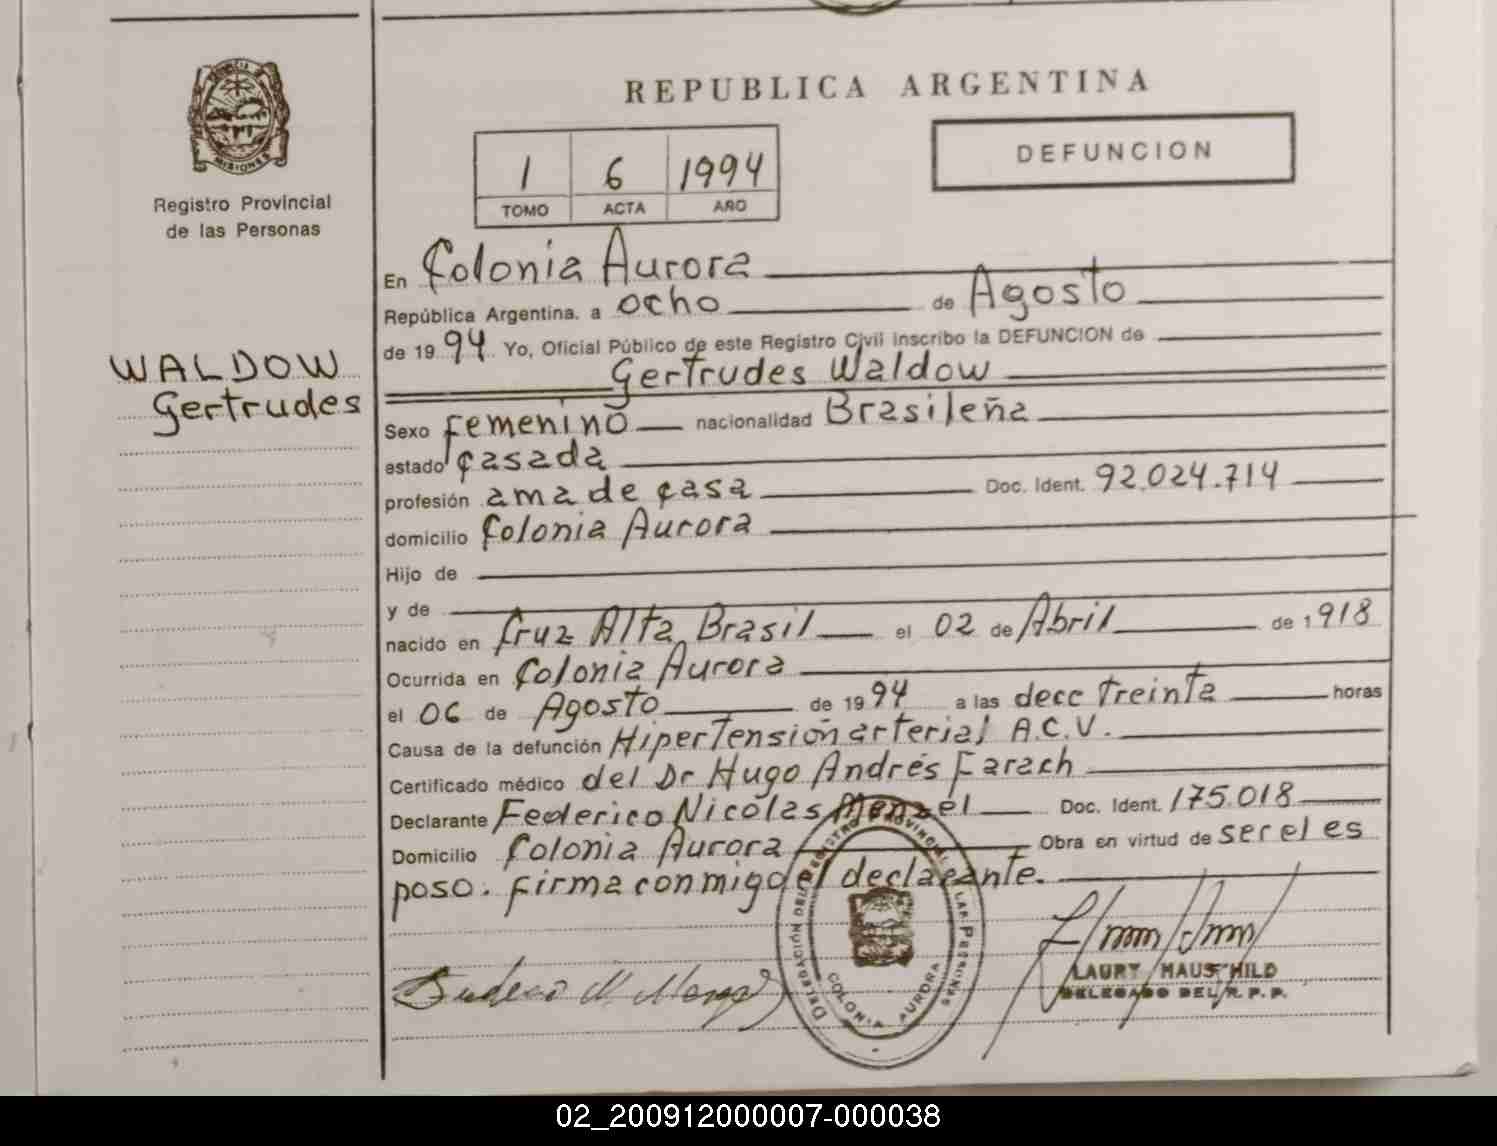 REPUBLICA ARGENTINA
MISIONES
Registro Provincial
de las Personas
1 6 1994
TOMO ACTA AÑO
DEFUNCION
WALDOW
Gertrudes
En Colonia Aurora
República Argentina. a ocho de Agosto
de 1994 Yo, Oficial Público de este Registro Civil inscribo la DEFUNCION de
Gertrudes Waldow
Sexo Femenino nacionalidad Brasileña
estado casada
profesión ama de casa Doc. Ident. 92.024.714
domicilio Colonia Aurora
Hijo de
y de
nacido en Cruz Alta Brasil el 02 de Abril de 1918
Ocurrida en Colonia Aurora
el 06 de Agosto de 1994 a las dece treinta horas
Causa de la defunción Hipertensión arterial A.C.V.
Certificado médico del Dr Hugo Andrés Farach
Declarante Federico Nicolas Menzel Doc. Ident. 175.018
Domicilio Colonia Aurora Obra en virtud de ser el es
poso. firma conmigo el declarante.
COLONIA AURORA
LAURY HAUSCHILD
DELEGADO DEL R. P. P.
02_200912000007-000038